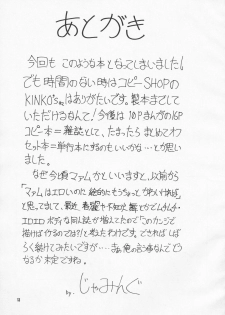 あとがき
今回も このような本となってしまいました!
でも時間のない時はコピーSHOPの
KINKO'sはありがたいです。製本までして
いただけるなんて!今後は10Pまんがの16P
コピー本=雑誌として、たまったらまとめてオフ
セット本=単行本にするのもいいかな…とか思い
ました。
なぜ今頃マァムかといいますと、以前から
「マァムはエロいのに
と思ってまして、最近
エロエロ ボディな同人誌が増えたので「このカンジで
描けば行けるのでは!?」と考えたわけです。できればしば
らく続けてみたいですが…
なるか未定ですね。
by. じゃみんぐ